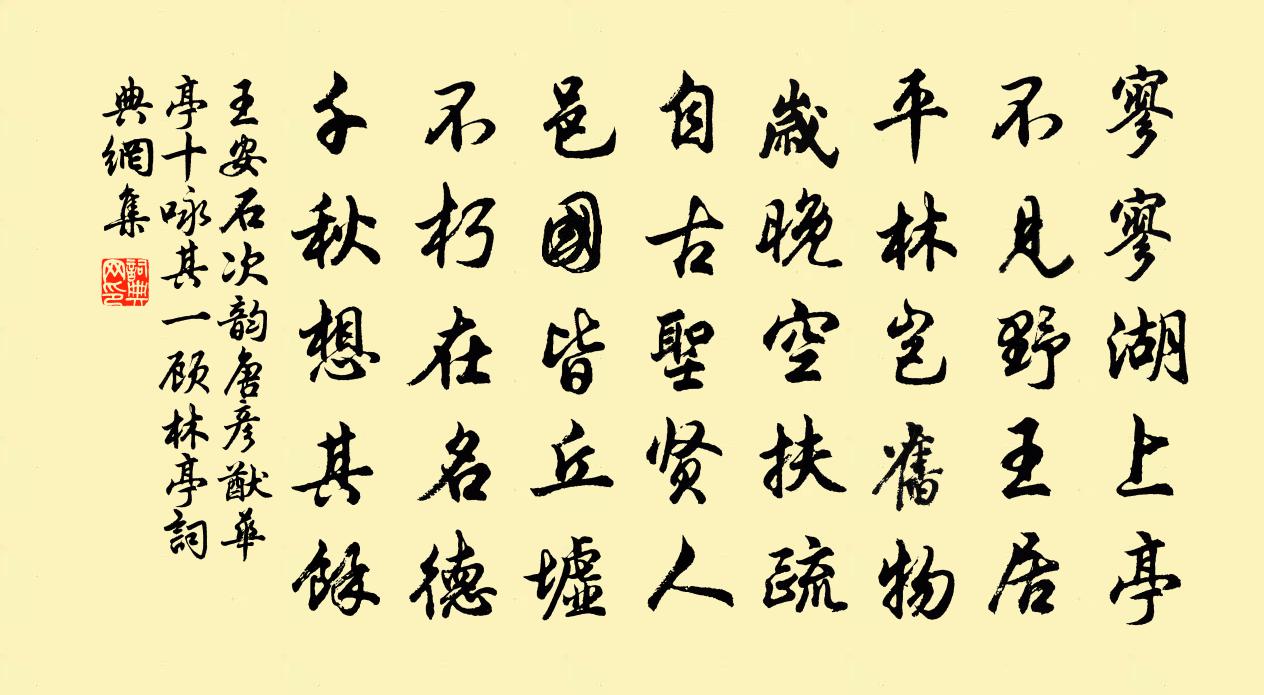 寥寥湖上亭
不見野王居
平林豈舊物
歲晚空扶疏
自古聖贤人
邑國皆丘墟
不朽在名德
千秋想其餘
王安石次韵唐彦猷華
亭十咏其一顾林亭詞
典網集
詞典
网印